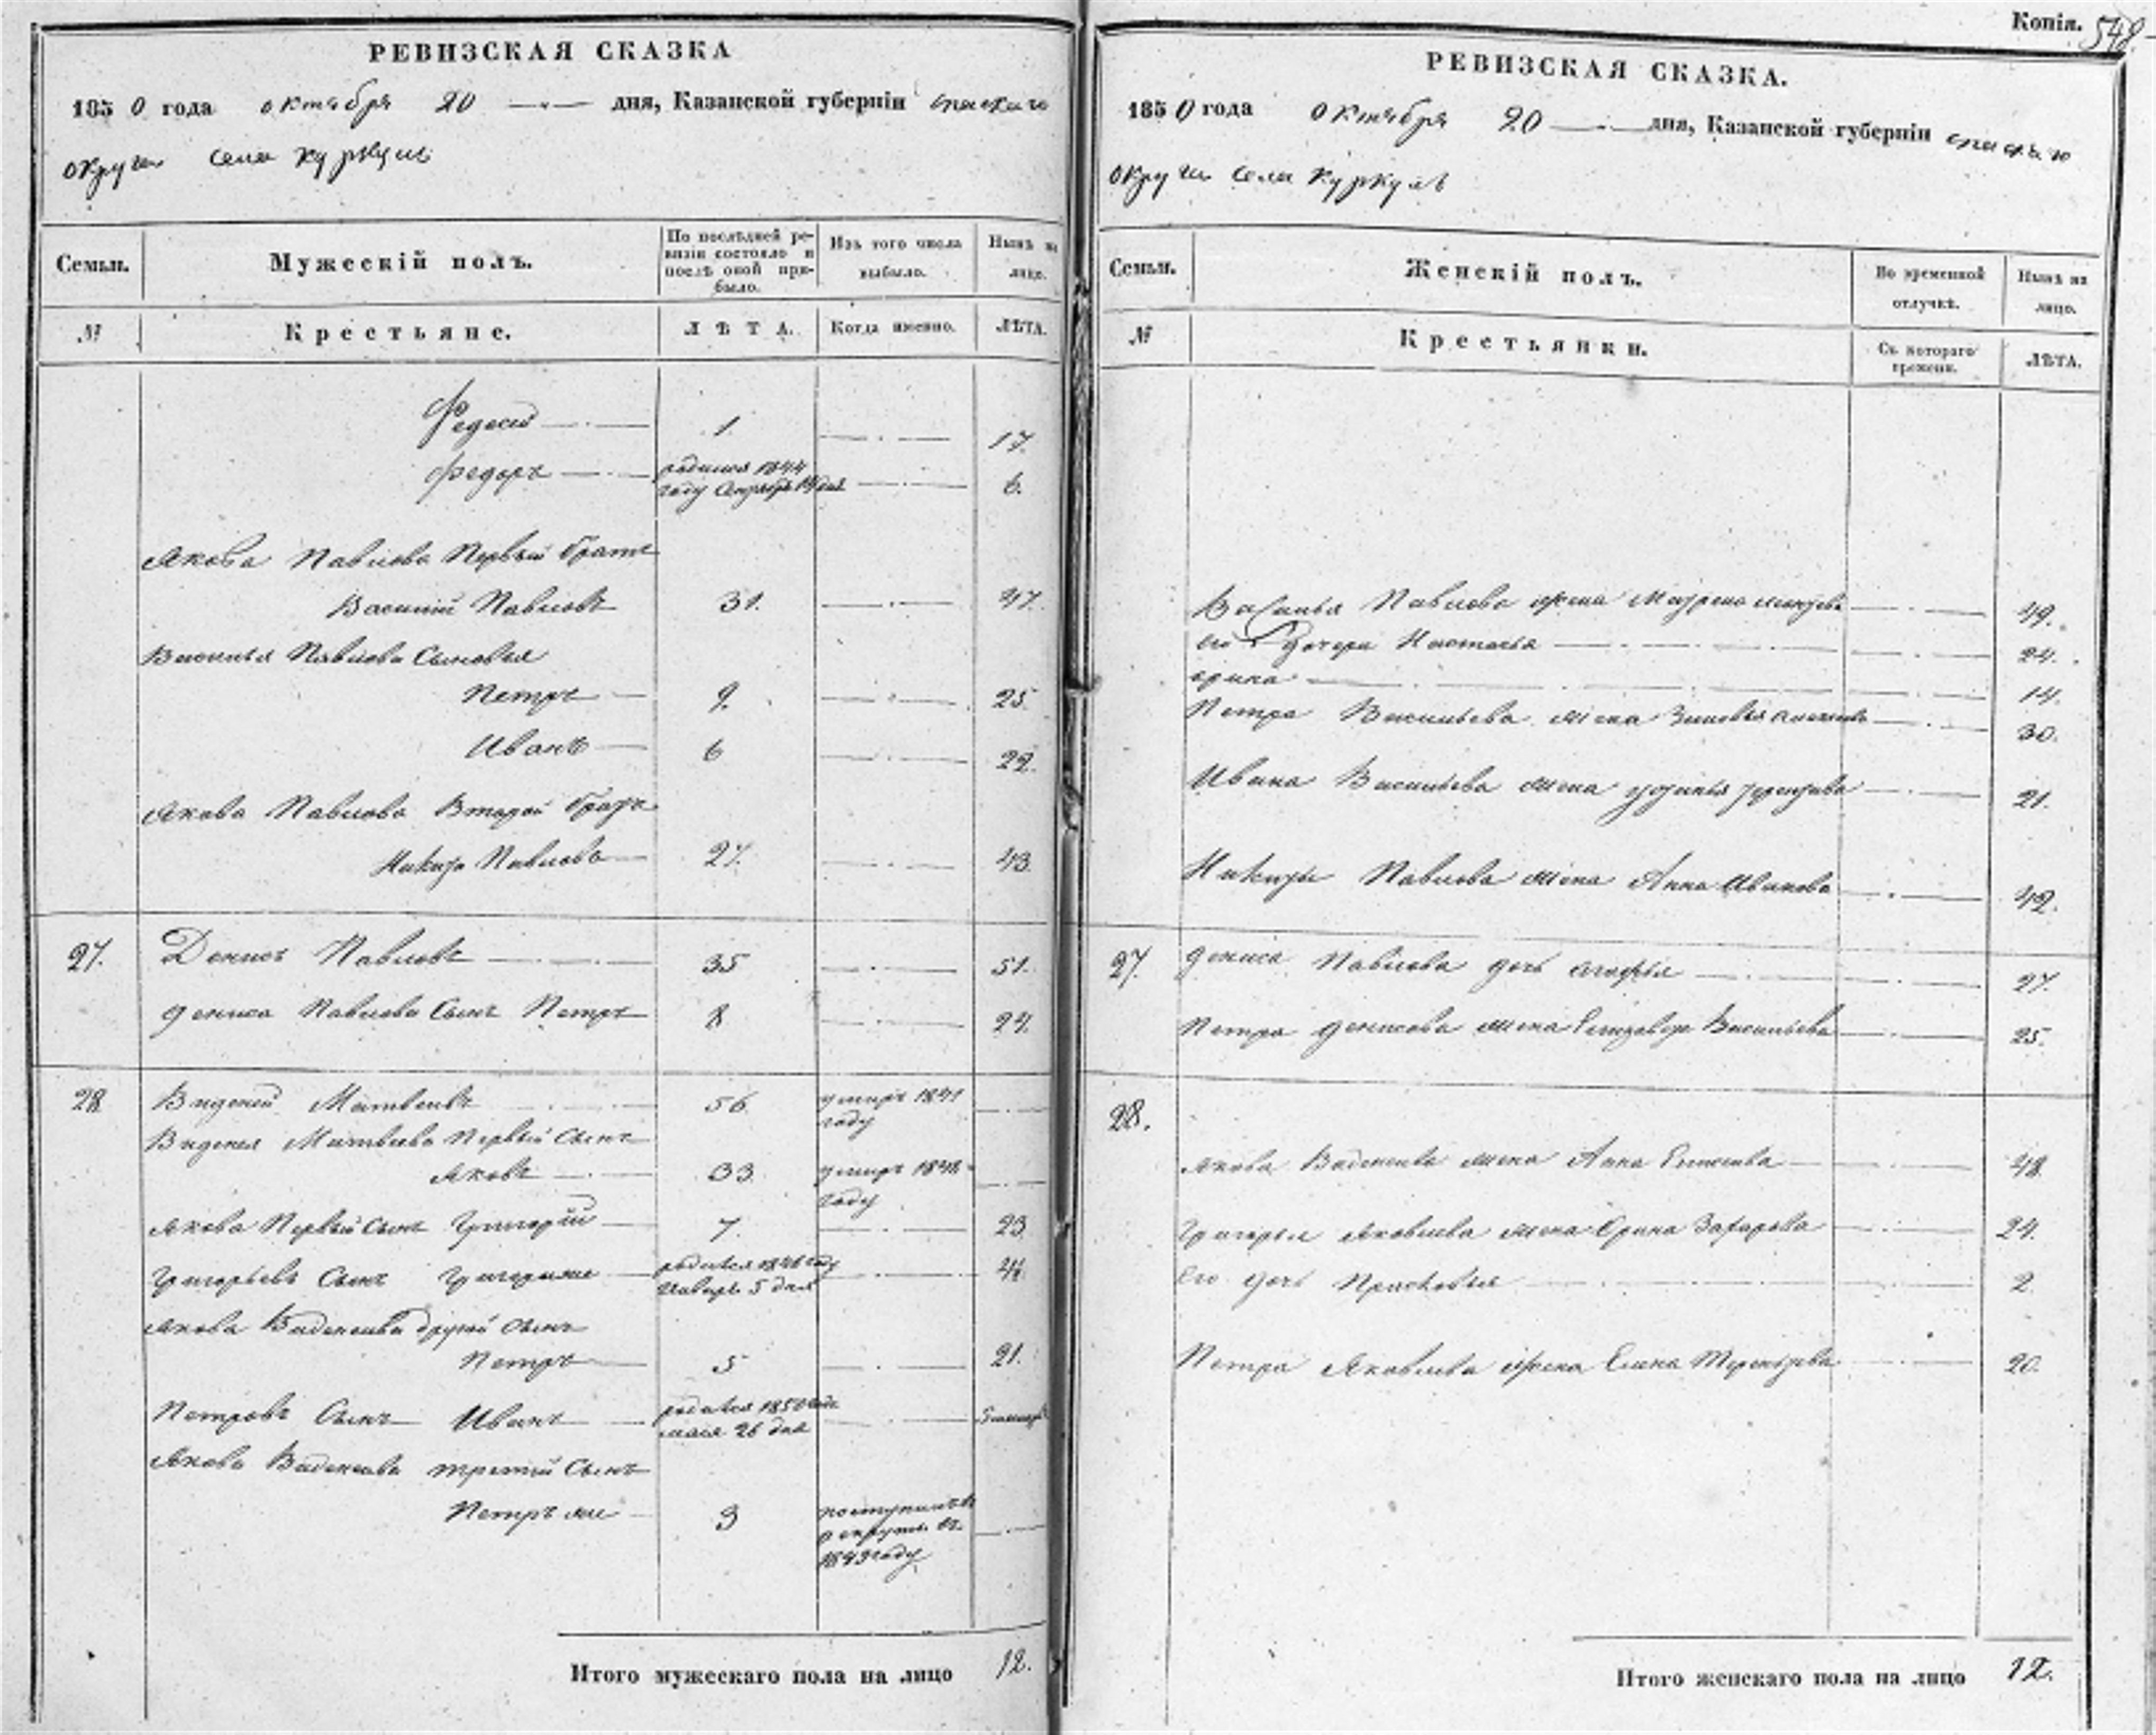 РЕВИЗСКАЯ СКАЗКА
1850 года октября 20 дня, Казанской губерніи спаскаго
округи села куркуль
Семьи. Мужескій полъ. По послѣдней ре-визіи состояло и послѣ оной при-было. Изъ того числа выбыло. Нынѣ на лицо.
№ Крестьяне. ЛѢТА. Когда именно. ЛѢТА.
Федосей 1. 17.
Федоръ родился 1844 6.
году
Якова Павлова Первый братъ
Василій Павловъ 31. 47.
Василья Павлова Сыновья
Петръ 9. 25.
Иванъ 6 22.
Якова Павлова Второй братъ
Никита Павловъ 27. 43.
27. Денисъ Павловъ 35 51.
Дениса Павлова Сынъ Петръ 8 24.
28 Виденей Матвеевъ 56. умеръ 1841
году
Виденея Матвеева Первый Сынъ
Яковъ 33. умеръ
году
Якова Первый Сынъ Григорій 7. 23
Григорьевъ Сынъ родился 1846 году 4.
Январь 5 дня
Якова Виденеева другой сынъ
Петръ 5 21.
Петровъ Сынъ Иванъ родился 1850 года
маія 26 дня
Якова Виденеева третій Сынъ
Петръ же 3 поступилъ въ
рекруты въ
1849 году
Итого мужескаго пола на лицо 12.
Копія. 548.
РЕВИЗСКАЯ СКАЗКА.
1850 года октября 20 дня, Казанской губерніи спаскаго
округи села куркуль
Семьи. Женскій полъ. Во временной отлучкѣ. Нынѣ на лицо.
№ Крестьянки. Съ котораго времени. ЛѢТА.
Василья Павлова жена 49.
его дочери Настасья 24.
арина 14.
Петра Васильева жена Зиновья 30.
Ивана Васильева жена 21.
Никиты Павлова жена Анна Иванова 42.
27. Дениса Павлова дочь агафья 27.
Петра Денисова жена Елизавета Васильева 25.
28.
Якова Виденеева жена Анна 48.
Григорья Яковлева жена Орина Захарова 24.
Его дочь Прасковья 2.
Петра Яковлева жена Елена Терентьева 20.
Итого женскаго пола на лицо 12.